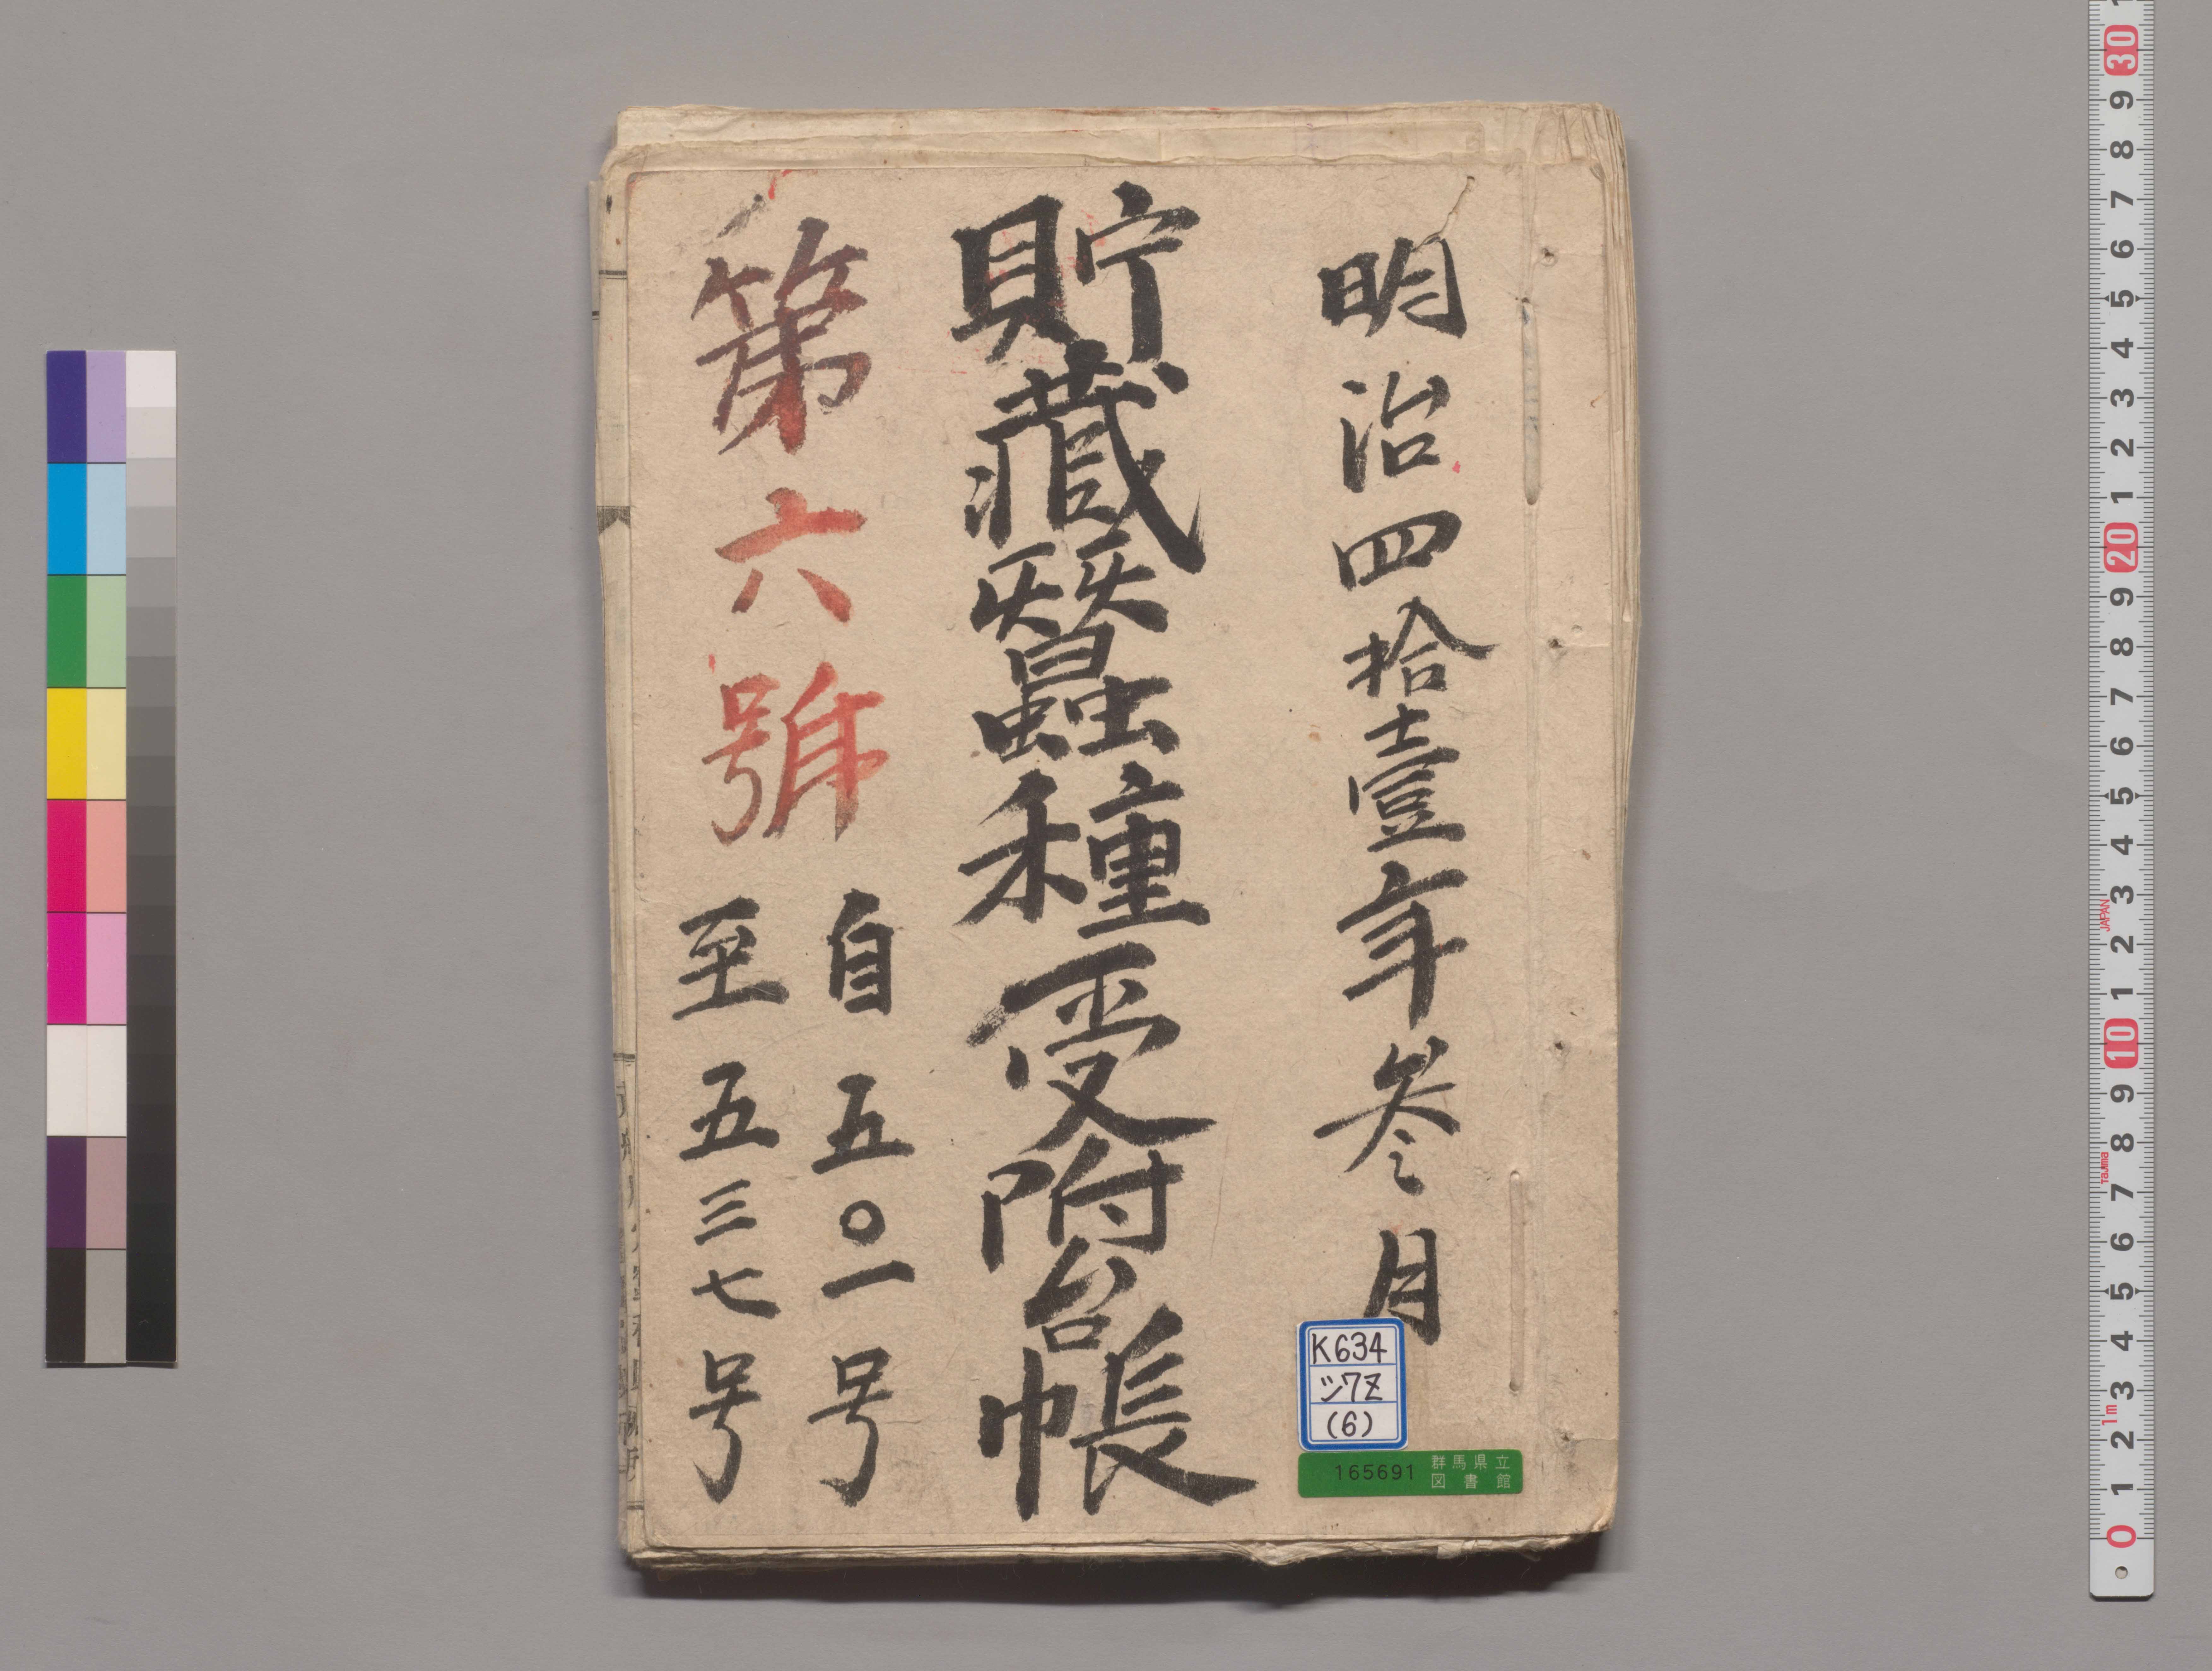 明治四拾壹年参月
貯藏蠶種受附台帳
第六號
自五〇一号
至五三七号
K634
ツ7Z
(6)
165691 群馬県立図書館